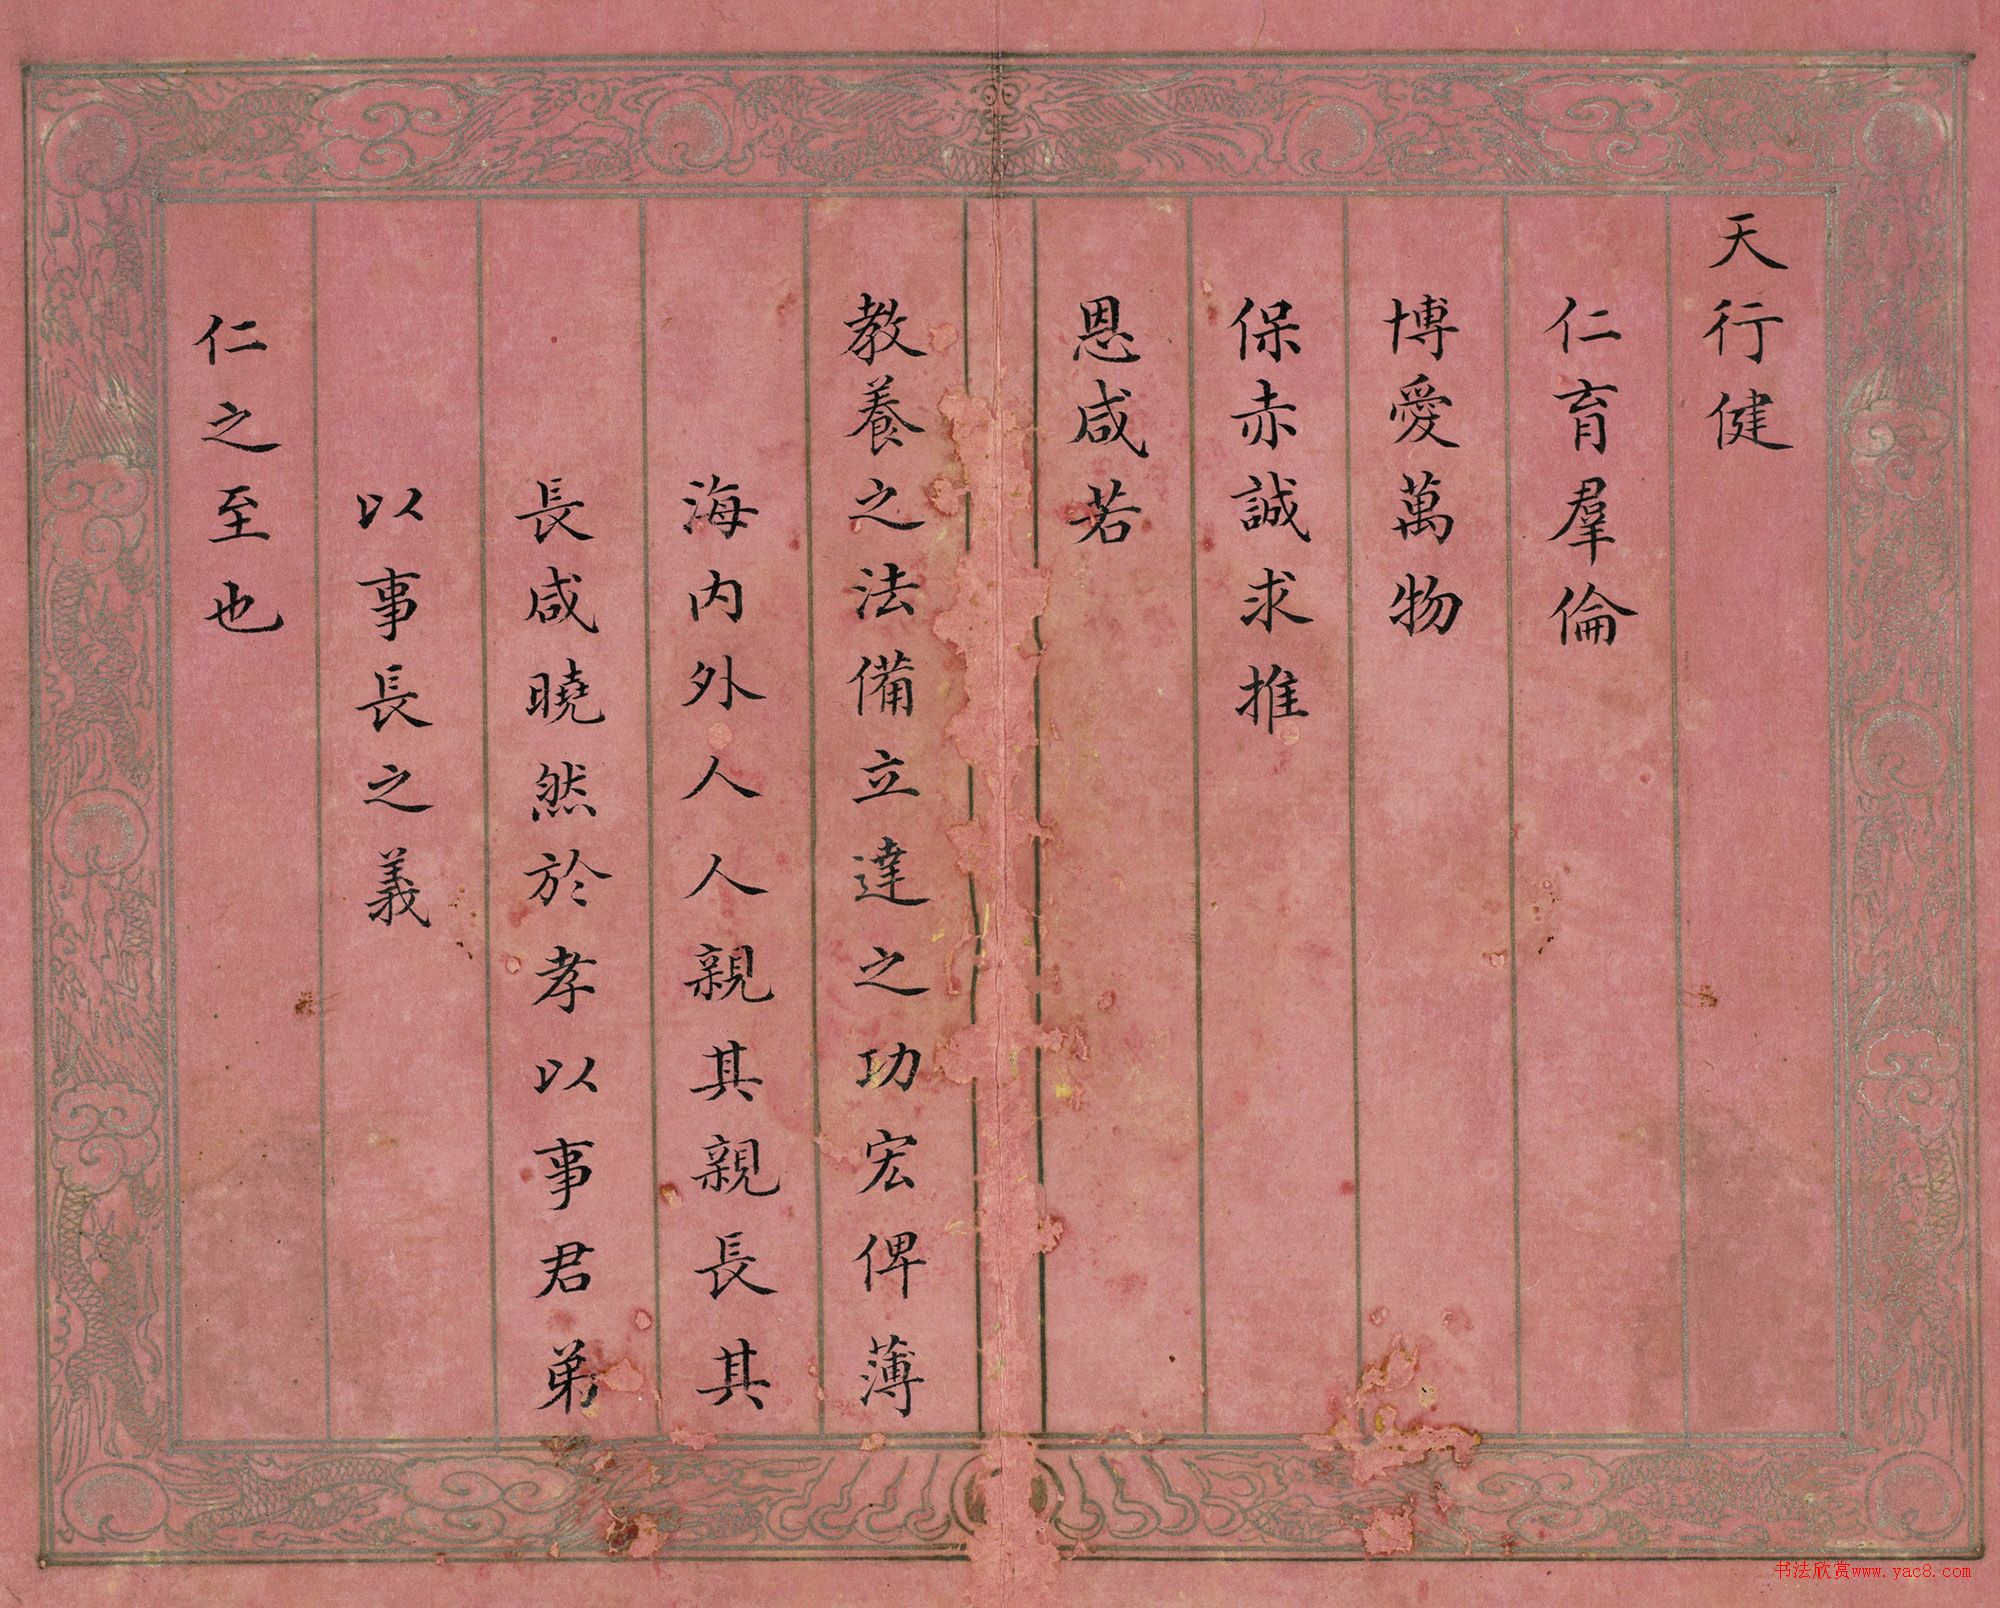 天行健
仁育羣倫
博愛萬物
保赤誠求推
恩咸若
教養之法備立達之功宏俾薄
海內外人人親其親長其
長咸曉然於孝以事君弟
以事長之義
仁之至也
书法欣赏www.yac8.com